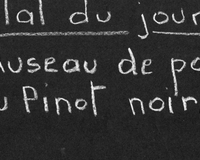 lal du jour
museau de po
u Pinot noir